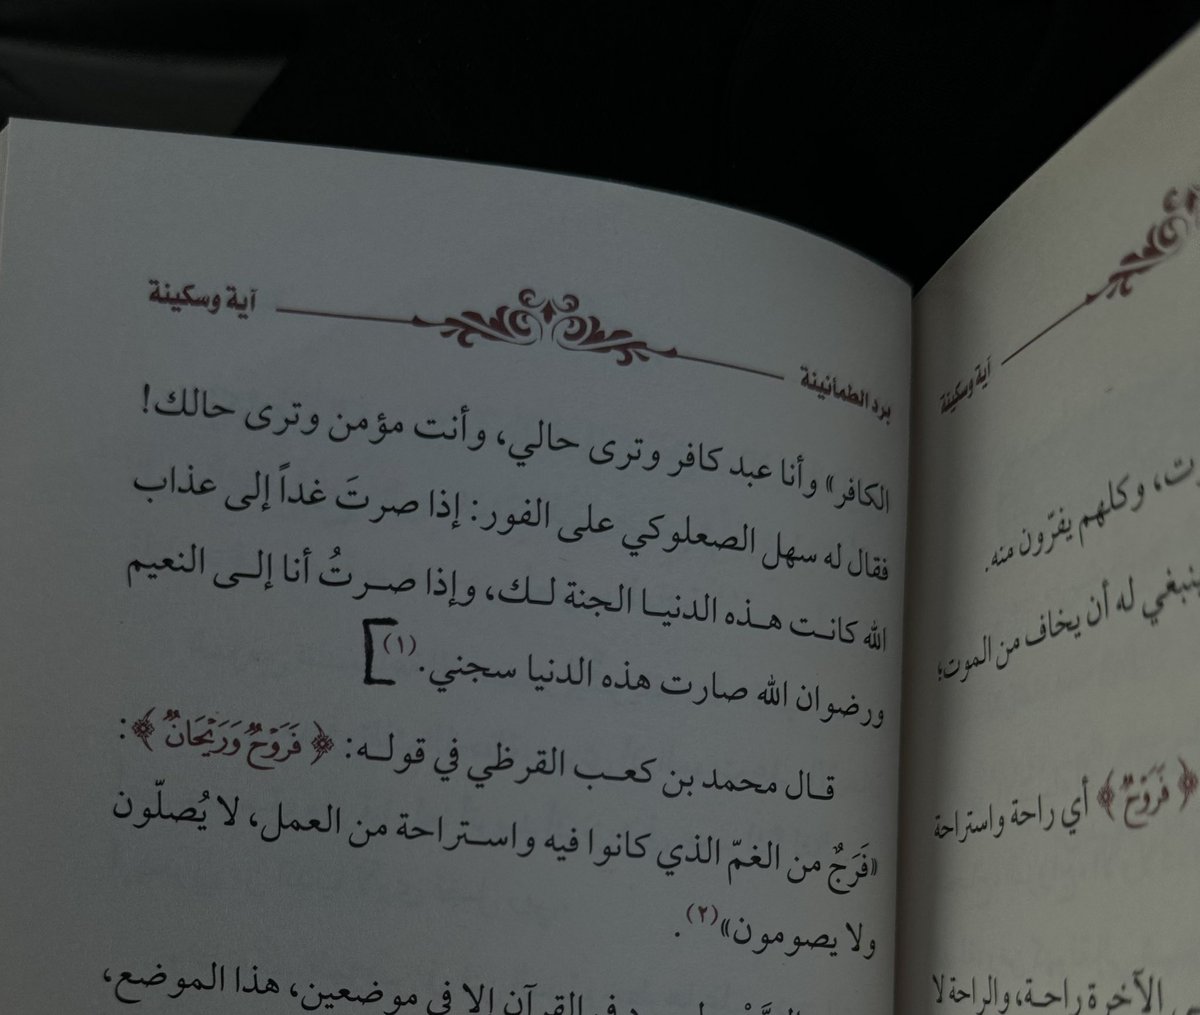 آية وسكينة
وكلهم يفرّون منه.
ينبغي له أن يخاف من الموت؛
﴿ فَرَوْحٌ ﴾ أي راحة واستراحة
الآخرة راحة، والراحة لا
برد الطمأنينة
آية وسكينة
الكافر» وأنا عبد كافر وترى حالي، وأنت مؤمن وترى حالك!
فقال له سهل الصعلوكي على الفور: إذا صرتَ غداً إلى عذاب
الله كانت هذه الدنيا الجنة لك، وإذا صرتُ أنا إلى النعيم
ورضوان الله صارت هذه الدنيا سجني.(١)
قال محمد بن كعب القرظي في قوله: ﴿ فَرَوْحٌ وَرَيْحَانٌ ﴾:
«فَرَجٌ من الغمّ الذي كانوا فيه واستراحة من العمل، لا يُصلّون
ولا يصومون»(٢).
القرآن إلا في موضعين، هذا الموضع،